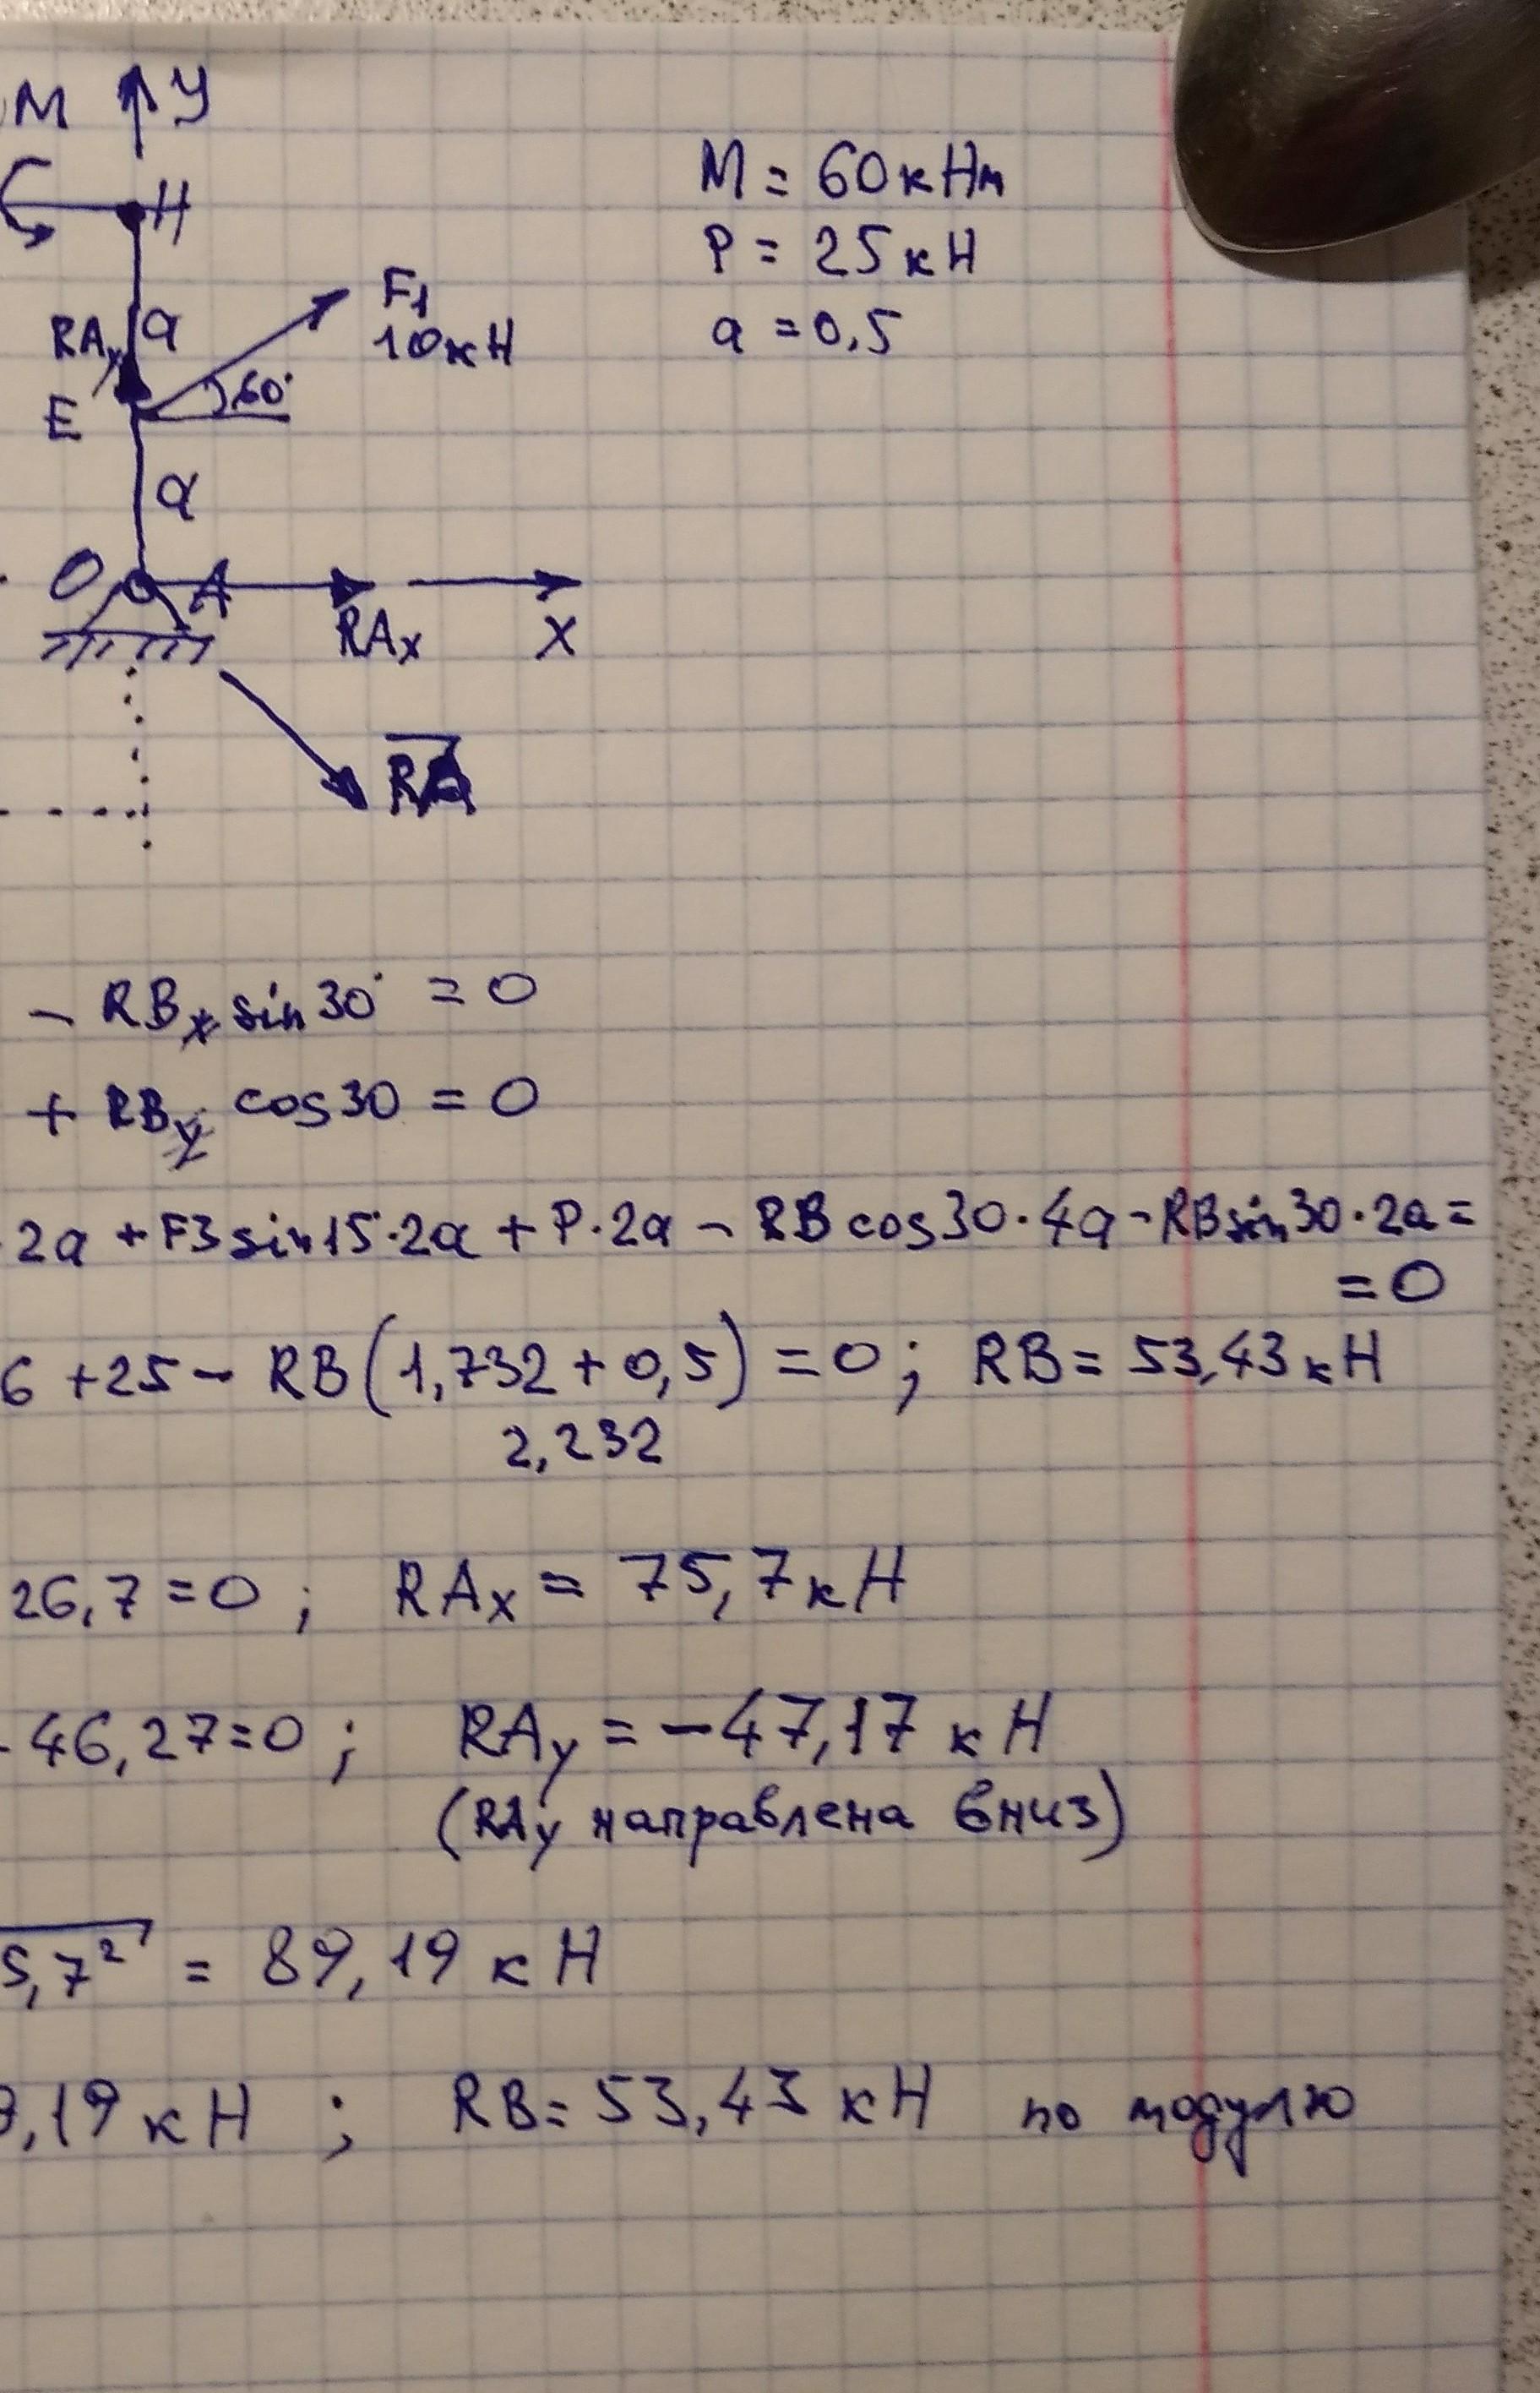 M У
H
M = 60кНм
P = 25кН
a = 0,5
F1
10кН
RAy a
60°
E
a
O A
RAx X
RA
- RBx sin30° = 0
+ RBy cos30 = 0
2a + F3 sin15°·2a + P·2a - RB cos30·4a - RB sin30·2a =
= 0
6 + 25 - RB(1,732 + 0,5) = 0; RB = 53,43 кН
2,232
26,7 = 0; RAx = 75,7 кН
46,27 = 0; RAy = -47,17 кН
(RAy направлена вниз)
5,7² = 89,19 кН
9,19 кН; RB = 53,43 кН по модулю